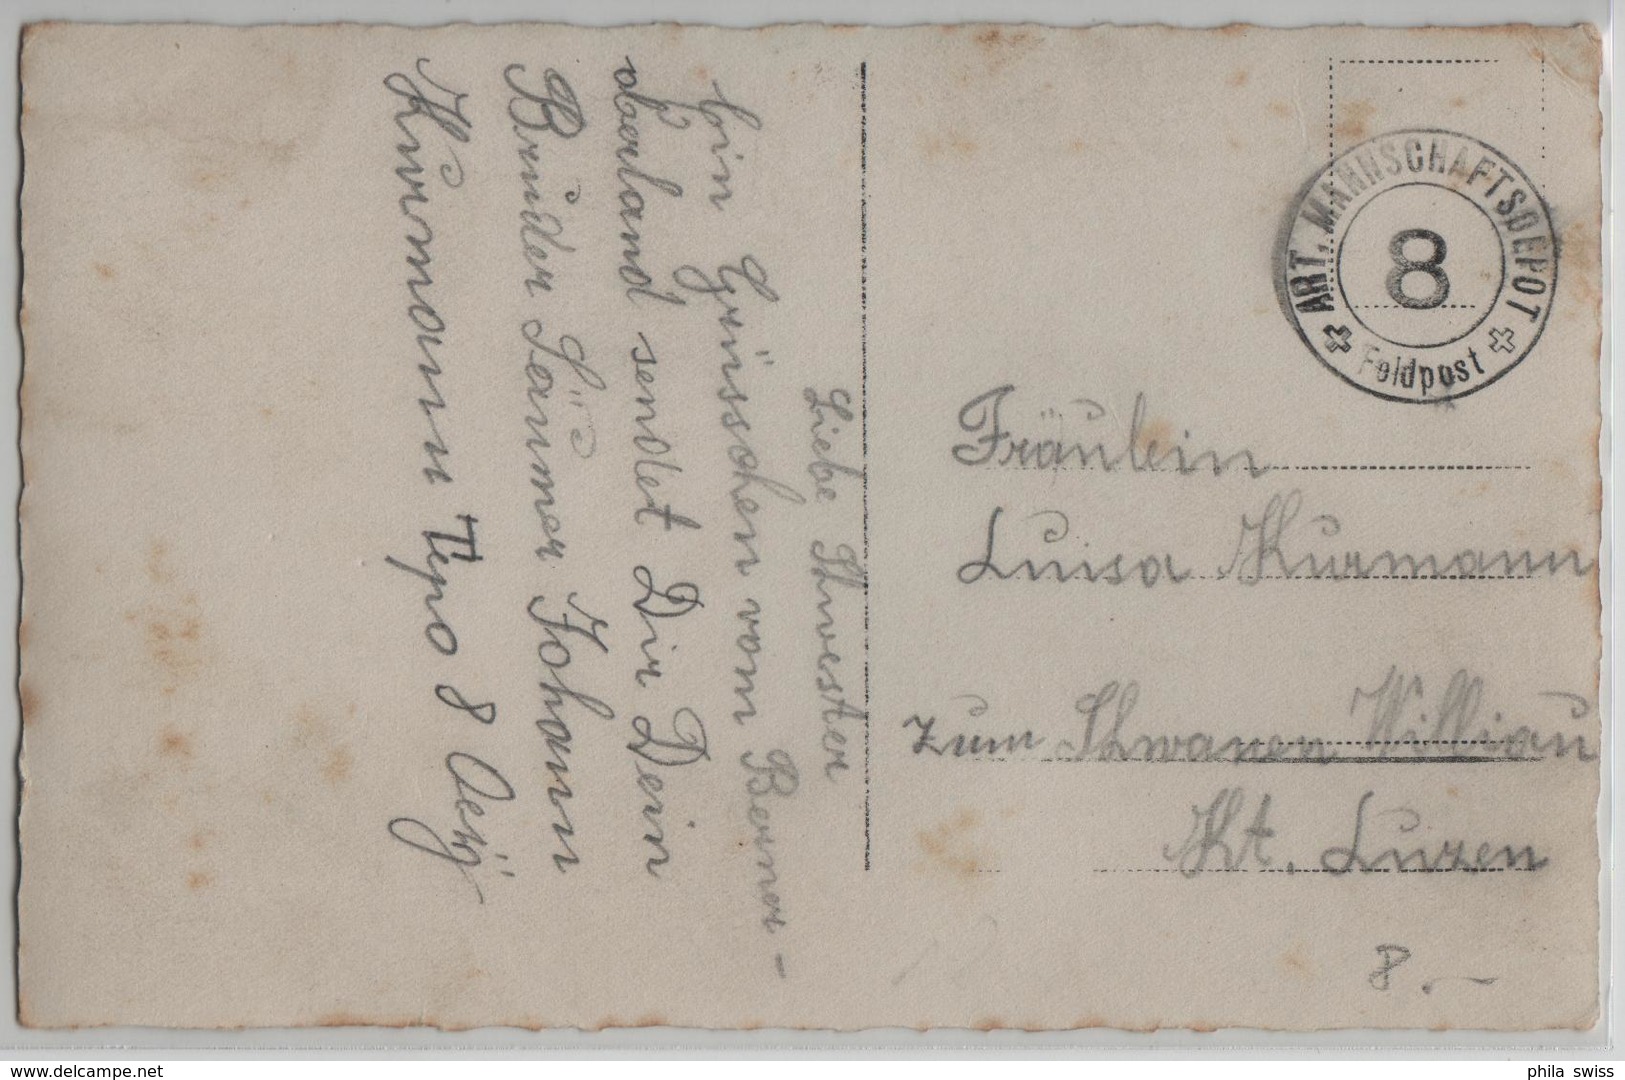 Liebe Schwester
Ein Grüsschen vom Berner-
oberland sendet Dir Dein
Bruder Säumer Johann
Kurmann Tepo 8 Aerig
ART. MANNSCHAFTSDEPOT
8
Feldpost
Fräulein
Luisa Kurmann
zum Schwanen Willisau
Kt. Luzen
8.–
delcampe.net
phila_swiss